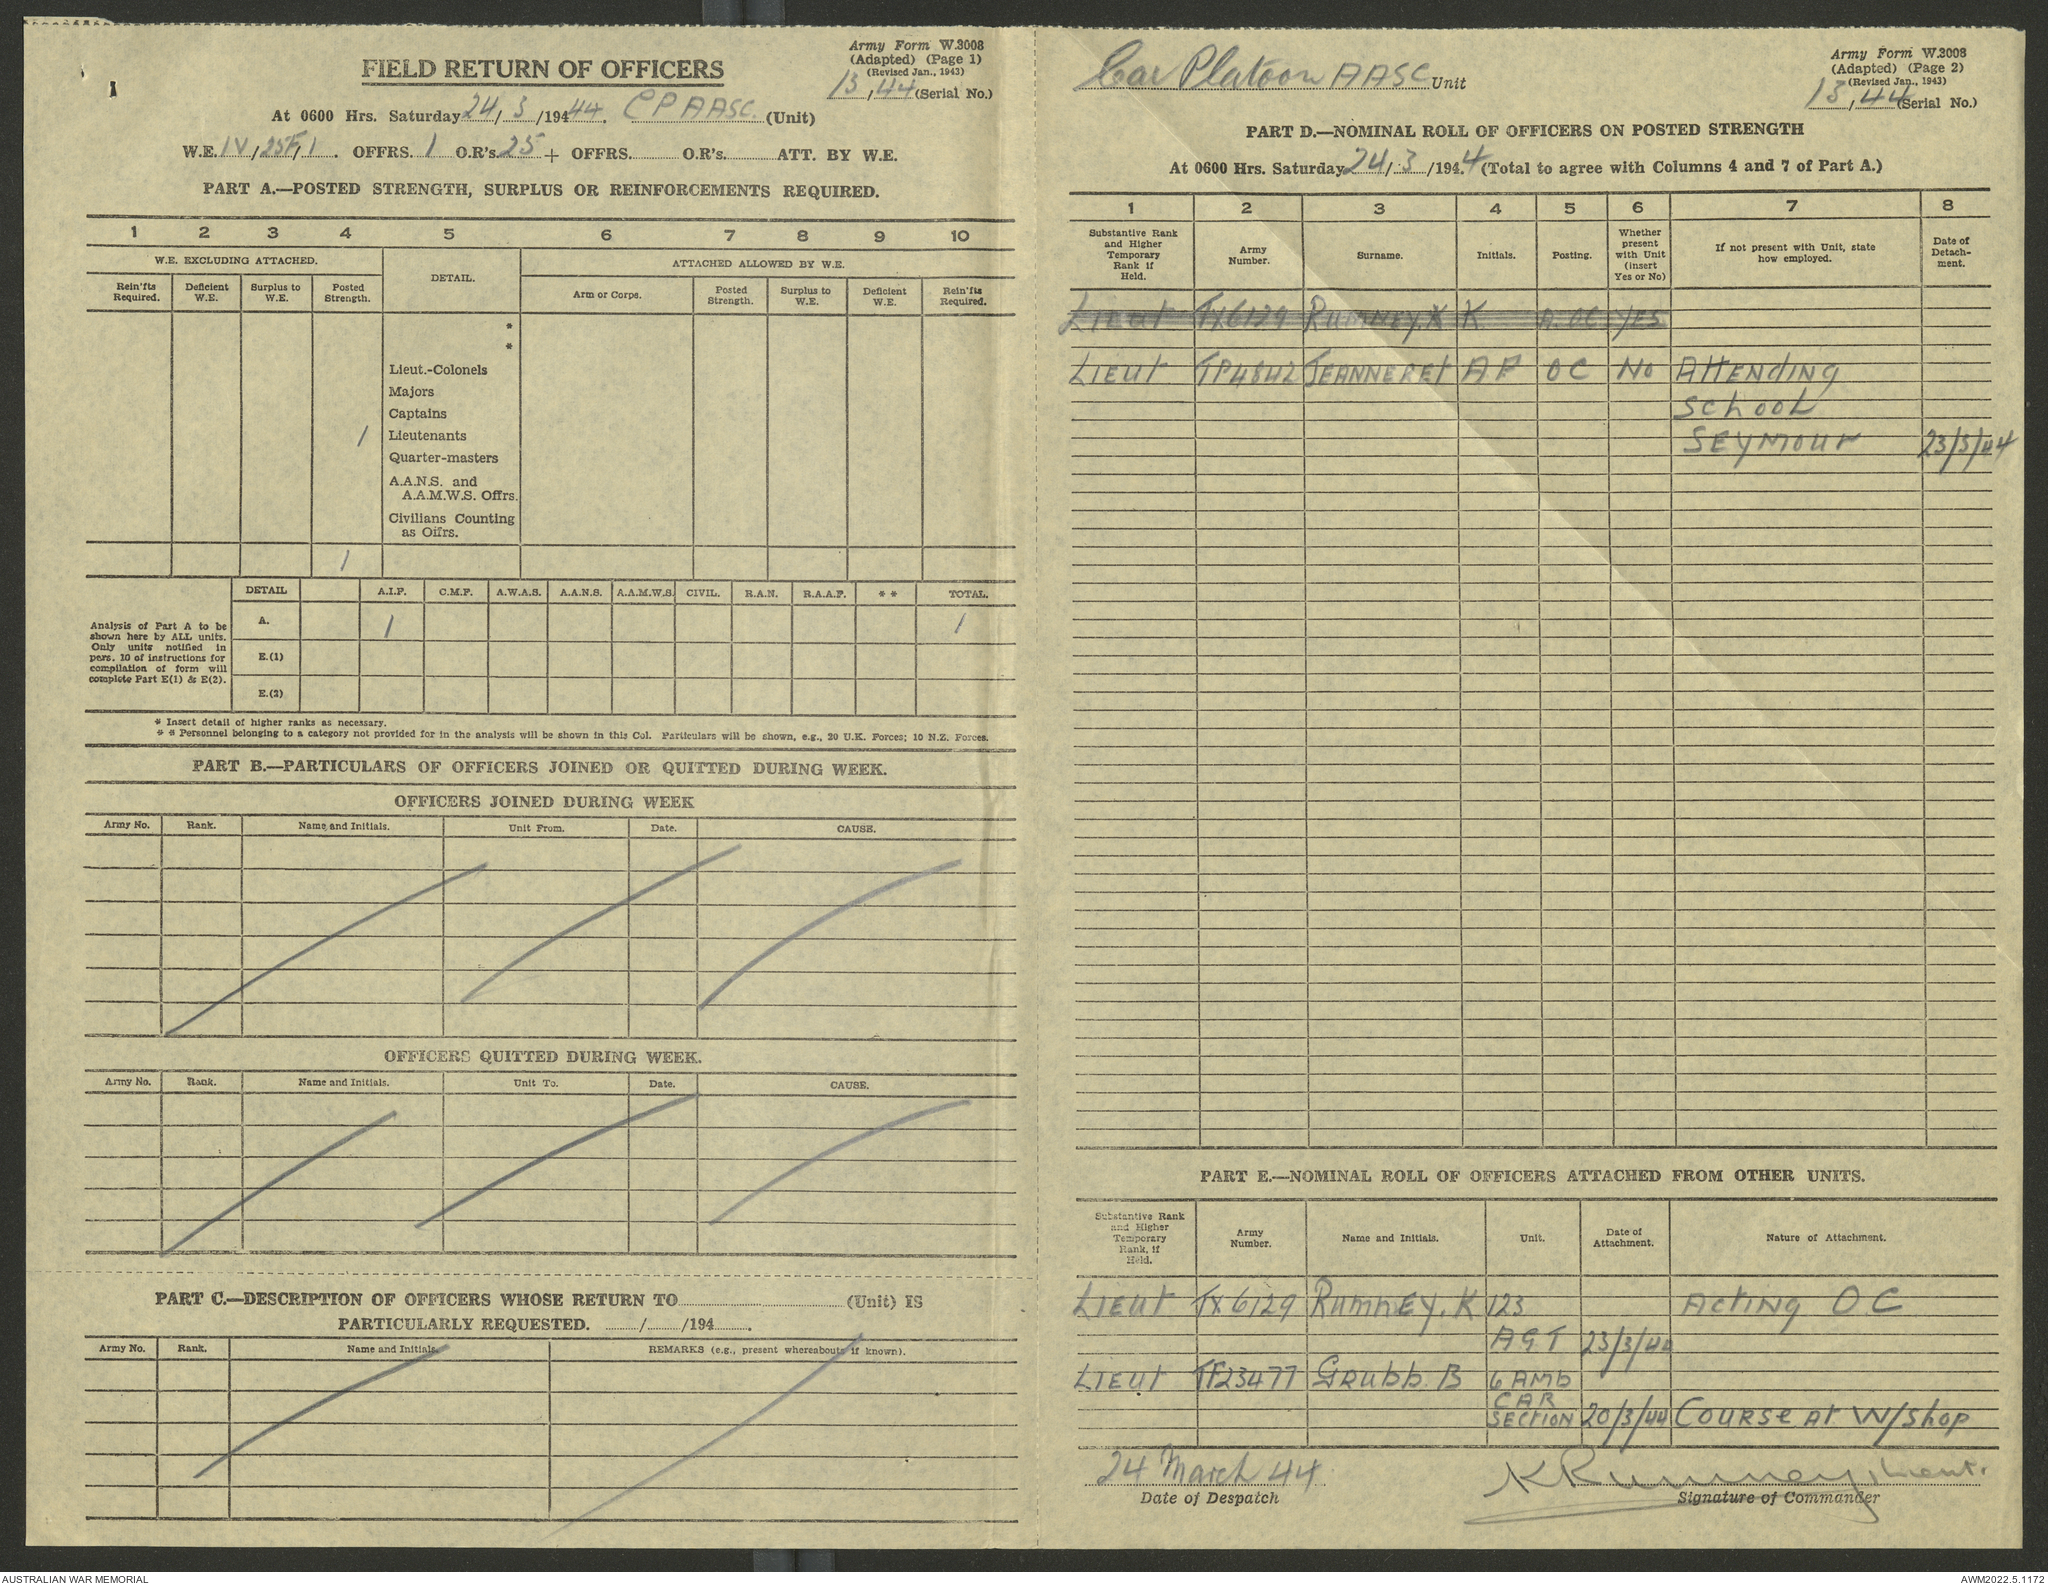 Army Form W.3008
(Adapted) (Page 1)
(Revised Jan., 1943)
13, 44 (Serial No.)
FIELD RETURN OF OFFICERS
At 0600 Hrs. Saturday 24/3/1944 44. CP AASC. (Unit)
W.E. IV/25F/1. OFFRS. 1 O.R's. 25 + OFFRS. O.R's. ATT. BY W.E.
PART A.—POSTED STRENGTH, SURPLUS OR REINFORCEMENTS REQUIRED.
1 2 3 4 5 6 7 8 9 10
W.E. EXCLUDING ATTACHED. DETAIL. ATTACHED ALLOWED BY W.E.
Rein'fts Required. Deficient W.E. Surplus to W.E. Posted Strength. Arm or Corps. Posted Strength. Surplus to W.E. Deficient W.E. Rein'fts Required.
*
*
Lieut.-Colonels
Majors
Captains
1 Lieutenants
Quarter-masters
A.A.N.S. and
A.A.M.W.S. Offrs.
Civilians Counting
as Offrs.
1
DETAIL A.I.F. C.M.F. A.W.A.S. A.A.N.S. A.A.M.W.S. CIVIL. R.A.N. R.A.A.F. * * TOTAL.
Analysis of Part A to be
shown here by ALL units.
Only units notified in
pars. 10 of instructions for
compilation of form will
complete Part E(1) & E(2).
A. 1 1
E.(1)
E.(2)
* Insert detail of higher ranks as necessary.
* * Personnel belonging to a category not provided for in the analysis will be shown in this Col. Particulars will be shown, e.g., 20 U.K. Forces; 10 N.Z. Forces.
PART B.—PARTICULARS OF OFFICERS JOINED OR QUITTED DURING WEEK.
OFFICERS JOINED DURING WEEK
Army No. Rank. Name and Initials. Unit From. Date. CAUSE.
OFFICERS QUITTED DURING WEEK.
Army No. Rank. Name and Initials. Unit To. Date. CAUSE.
PART C.—DESCRIPTION OF OFFICERS WHOSE RETURN TO (Unit) IS
PARTICULARLY REQUESTED. / /194 .
Army No. Rank. Name and Initials. REMARKS (e.g., present whereabouts if known).
Car Platoon AASC Unit
Army Form W.3008
(Adapted) (Page 2)
(Revised Jan., 1943)
13, 44 (Serial No.)
PART D.—NOMINAL ROLL OF OFFICERS ON POSTED STRENGTH
At 0600 Hrs. Saturday 24/3/1944 (Total to agree with Columns 4 and 7 of Part A.)
1 2 3 4 5 6 7 8
Substantive Rank and Higher Temporary Rank if Held. Army Number. Surname. Initials. Posting. Whether present with Unit (insert Yes or No) If not present with Unit, state how employed. Date of Detachment.
Lieut TX6129 Rumney.K K A.OC Yes
Lieut TP4842 Jeanneret AP OC No Attending
School
Seymour 23/3/44
PART E.—NOMINAL ROLL OF OFFICERS ATTACHED FROM OTHER UNITS.
Substantive Rank and Higher Temporary Rank, if Held. Army Number. Name and Initials. Unit. Date of Attachment. Nature of Attachment.
Lieut TX6129 Rumney.K 123 Acting OC
AGT 23/3/44
Lieut TF23477 Grubb. B 6 Amb
CAR
SECTION 20/3/44 Course at W/Shop
24 March 44
K Rumney, Lieut.
Date of Despatch
Signature of Commander
AUSTRALIAN WAR MEMORIAL
AWM2022.5.1172